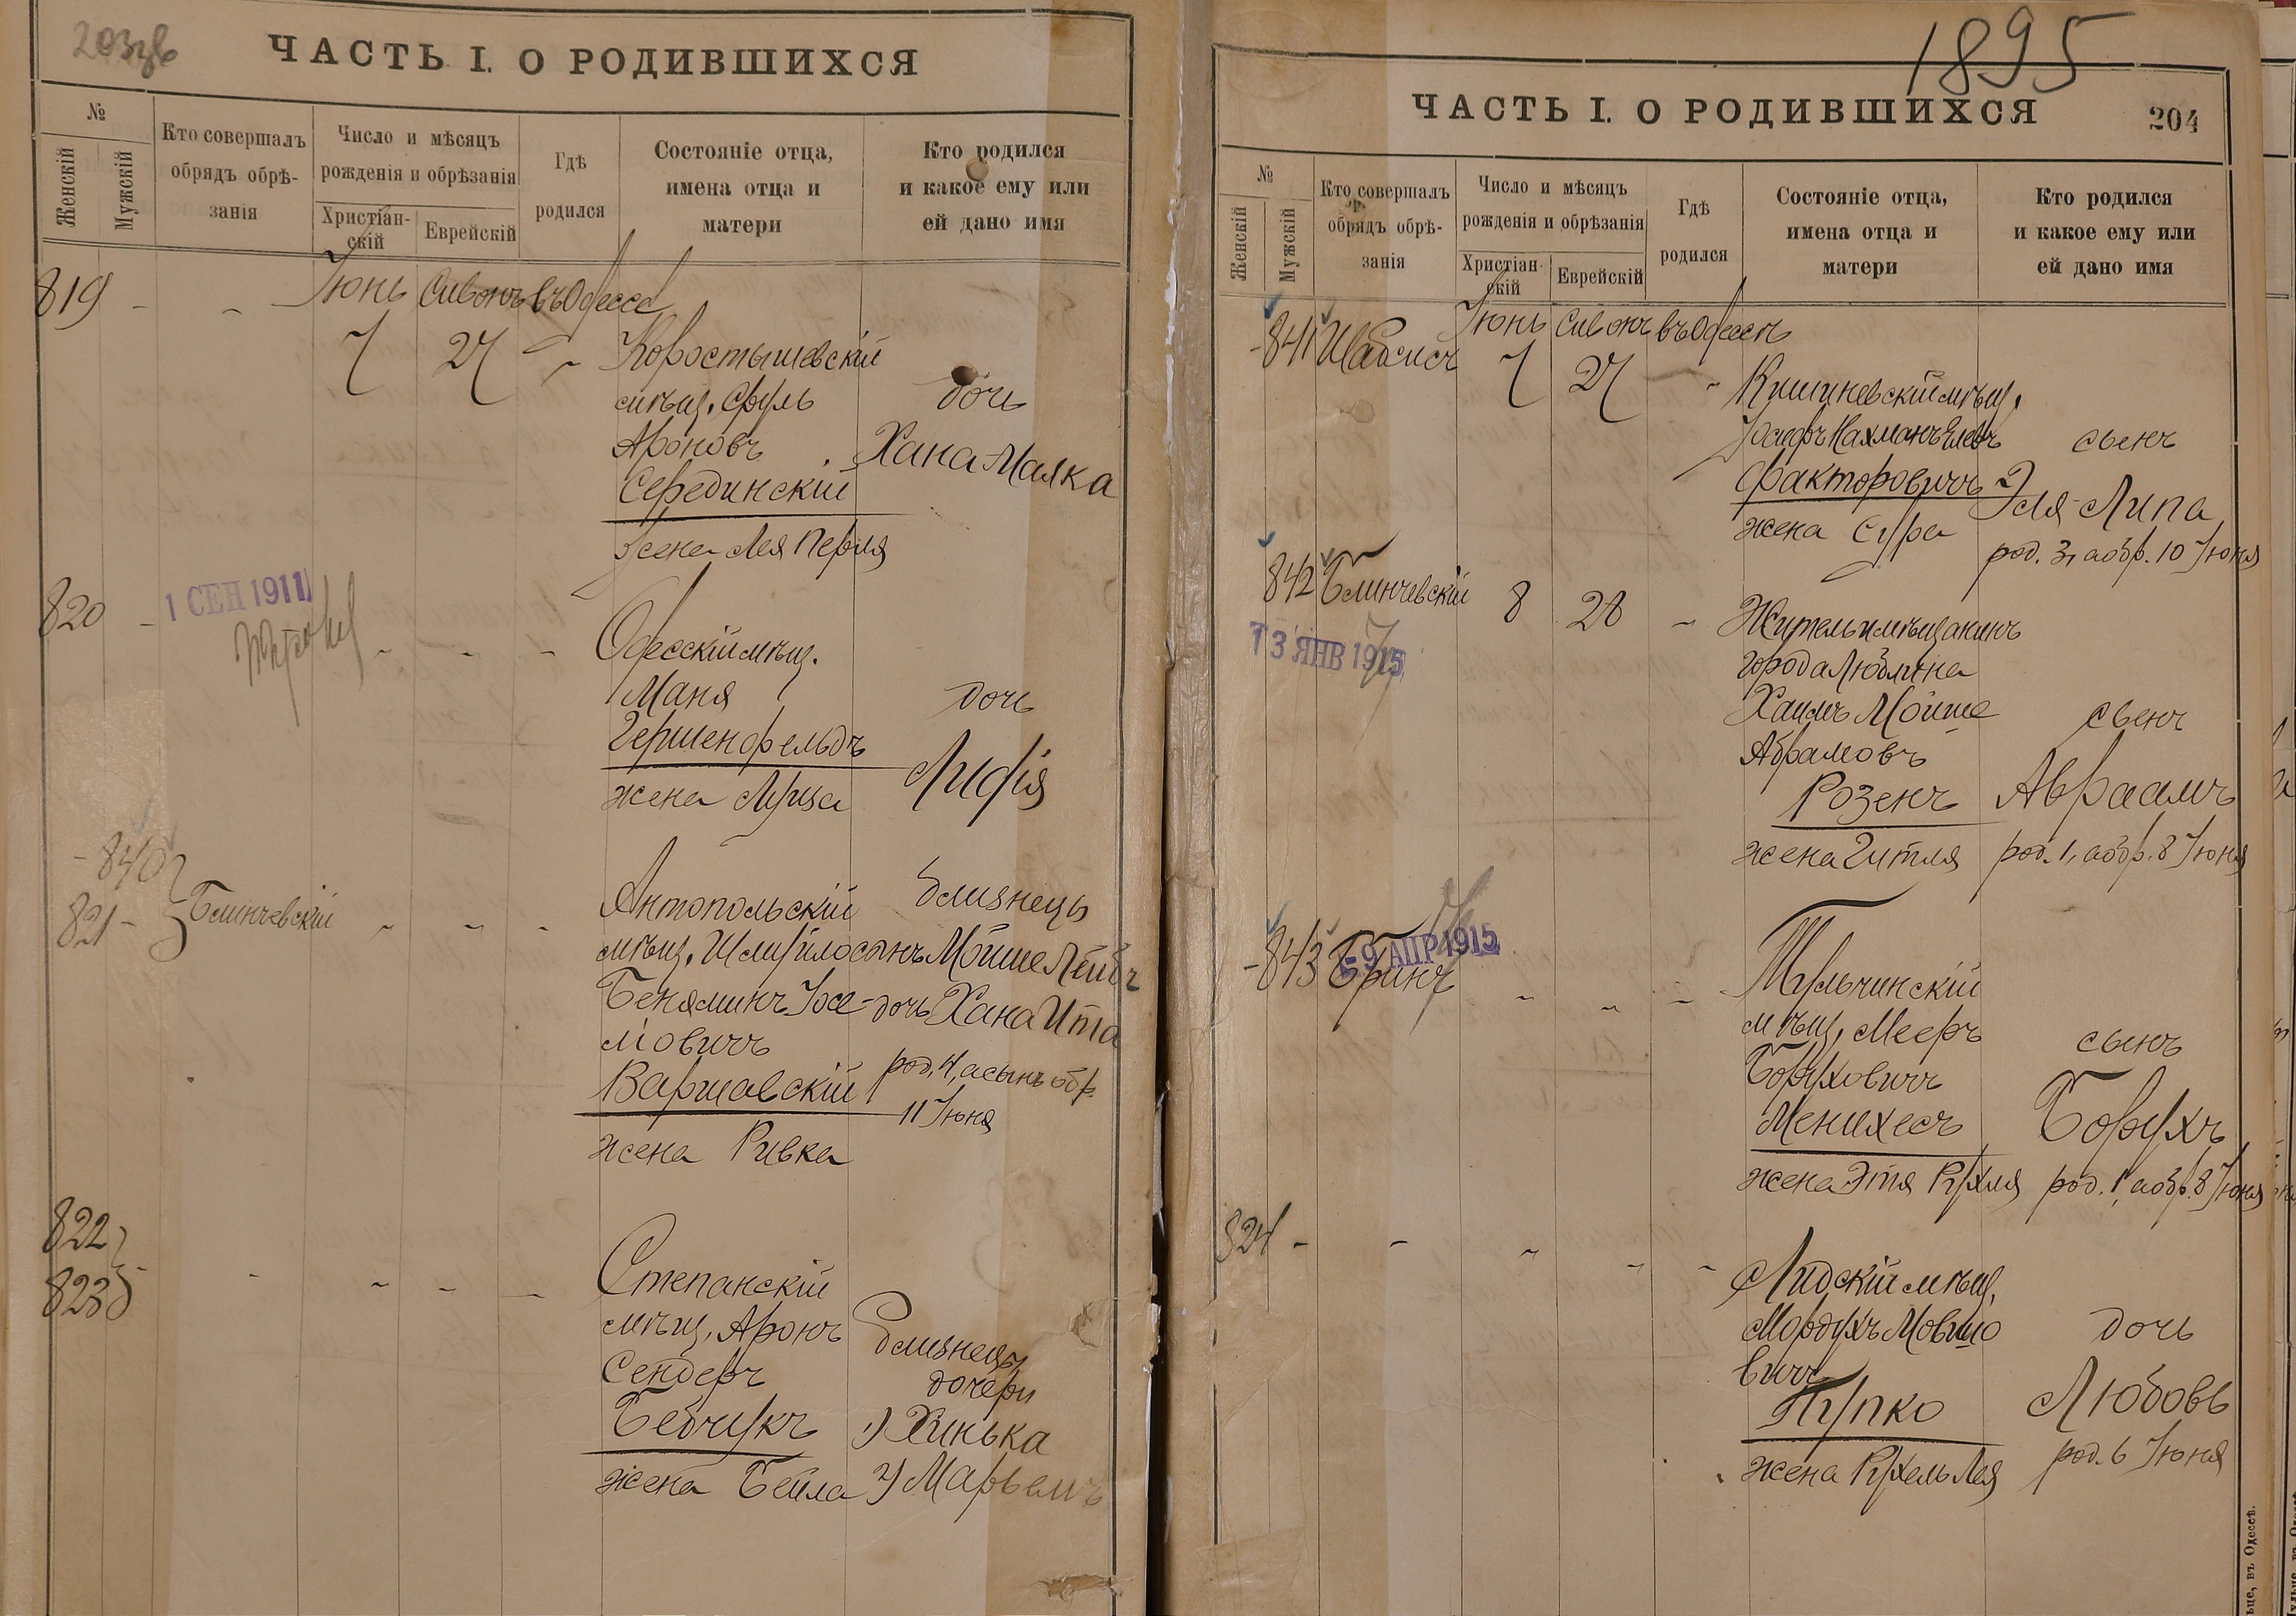 203
ЧАСТЬ I. О РОДИВШИХСЯ
№
Женскій
Мужскій
Кто совершалъ
обрядъ обрѣ-
занія
Число и мѣсяцъ
рожденія и обрѣзанія
Христіан-
скій
Еврейскій
Гдѣ
родился
Состояніе отца,
имена отца и
матери
Кто родился
и какое ему или
ей дано имя
819 - - Іюнь Сивонъ въ Одессѣ
7 27 - Коростышевскій
мѣщ. Сруль
Ароновъ
Серединскій
жена Лея Перля
дочь
Хана Малка
820 -
1 СЕН 1911
- - - Одесскій мѣщ.
Маня
Гершенфельдъ
жена Луиза
дочь
Лидія
- 840
821 - Блинчевскій - - -
Антопольскій
мѣщ. Шмуйло
Беняминъ Іосе-
ліовичъ
Варшавскій
жена Ривка
близнецы
сынъ Мойше Лейбъ
дочь Хана Ита
род. 4, а сынъ обр.
11 Іюня
822
823
- - - -
Степанскій
мѣщ. Аронъ
Сендеръ
Бебчукъ
жена Бейла
близнецы
дочери
1) Хинька
2) Марьемъ
1895
ЧАСТЬ I. О РОДИВШИХСЯ
204
№
Женскій
Мужскій
Кто совершалъ
обрядъ обрѣ-
занія
Число и мѣсяцъ
рожденія и обрѣзанія
Христіан-
скій
Еврейскій
Гдѣ
родился
Состояніе отца,
имена отца и
матери
Кто родился
и какое ему или
ей дано имя
Іюнь Сивонъ въ Одессѣ
- 841 Шабсисъ 7 27 - Кишиневскій мѣщ.
Іосифъ Нахманъ
Факторовичъ
жена Сура
сынъ
Эля-Липа
род. 3, а обр. 10 Іюня
842 Блинчевскій 8 28 -
13 ЯНВ 1915
Житель и мѣщанинъ
города Люблина
Хаимъ Мойше
Абрамовъ
Розенъ
жена Гитля
сынъ
Авраамъ
род. 1, а обр. 8 Іюня
- 843 Бринъ - - -
- 9 АПР 1915
Тульчинскій
мѣщ. Мееръ
Боруховичъ
Менихесъ
жена Этя Рухля
сынъ
Борухъ
род. 1, а обр. 8 Іюня
824 - - - - -
Лидскій мѣщ.
Мордухъ Мовшо
вичъ
Пупко
жена Рухель Лея
дочь
Любовь
род. 6 Іюня
въ Одессѣ.